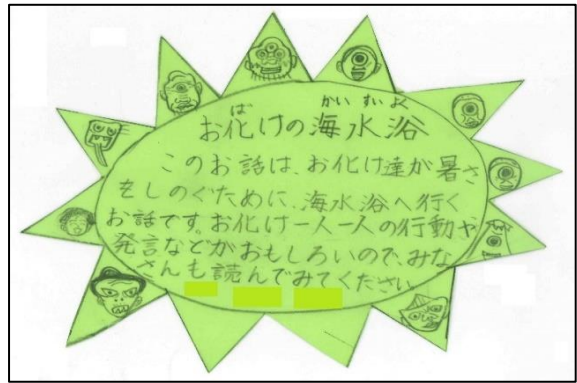 ば かいすいよく
お化けの海水浴
このお話は、お化け達が暑さ
をしのぐために、海水浴へ行く
お話です。お化け一人一人の行動や
発言などがおもしろいので、みな
さんも読んでみてください